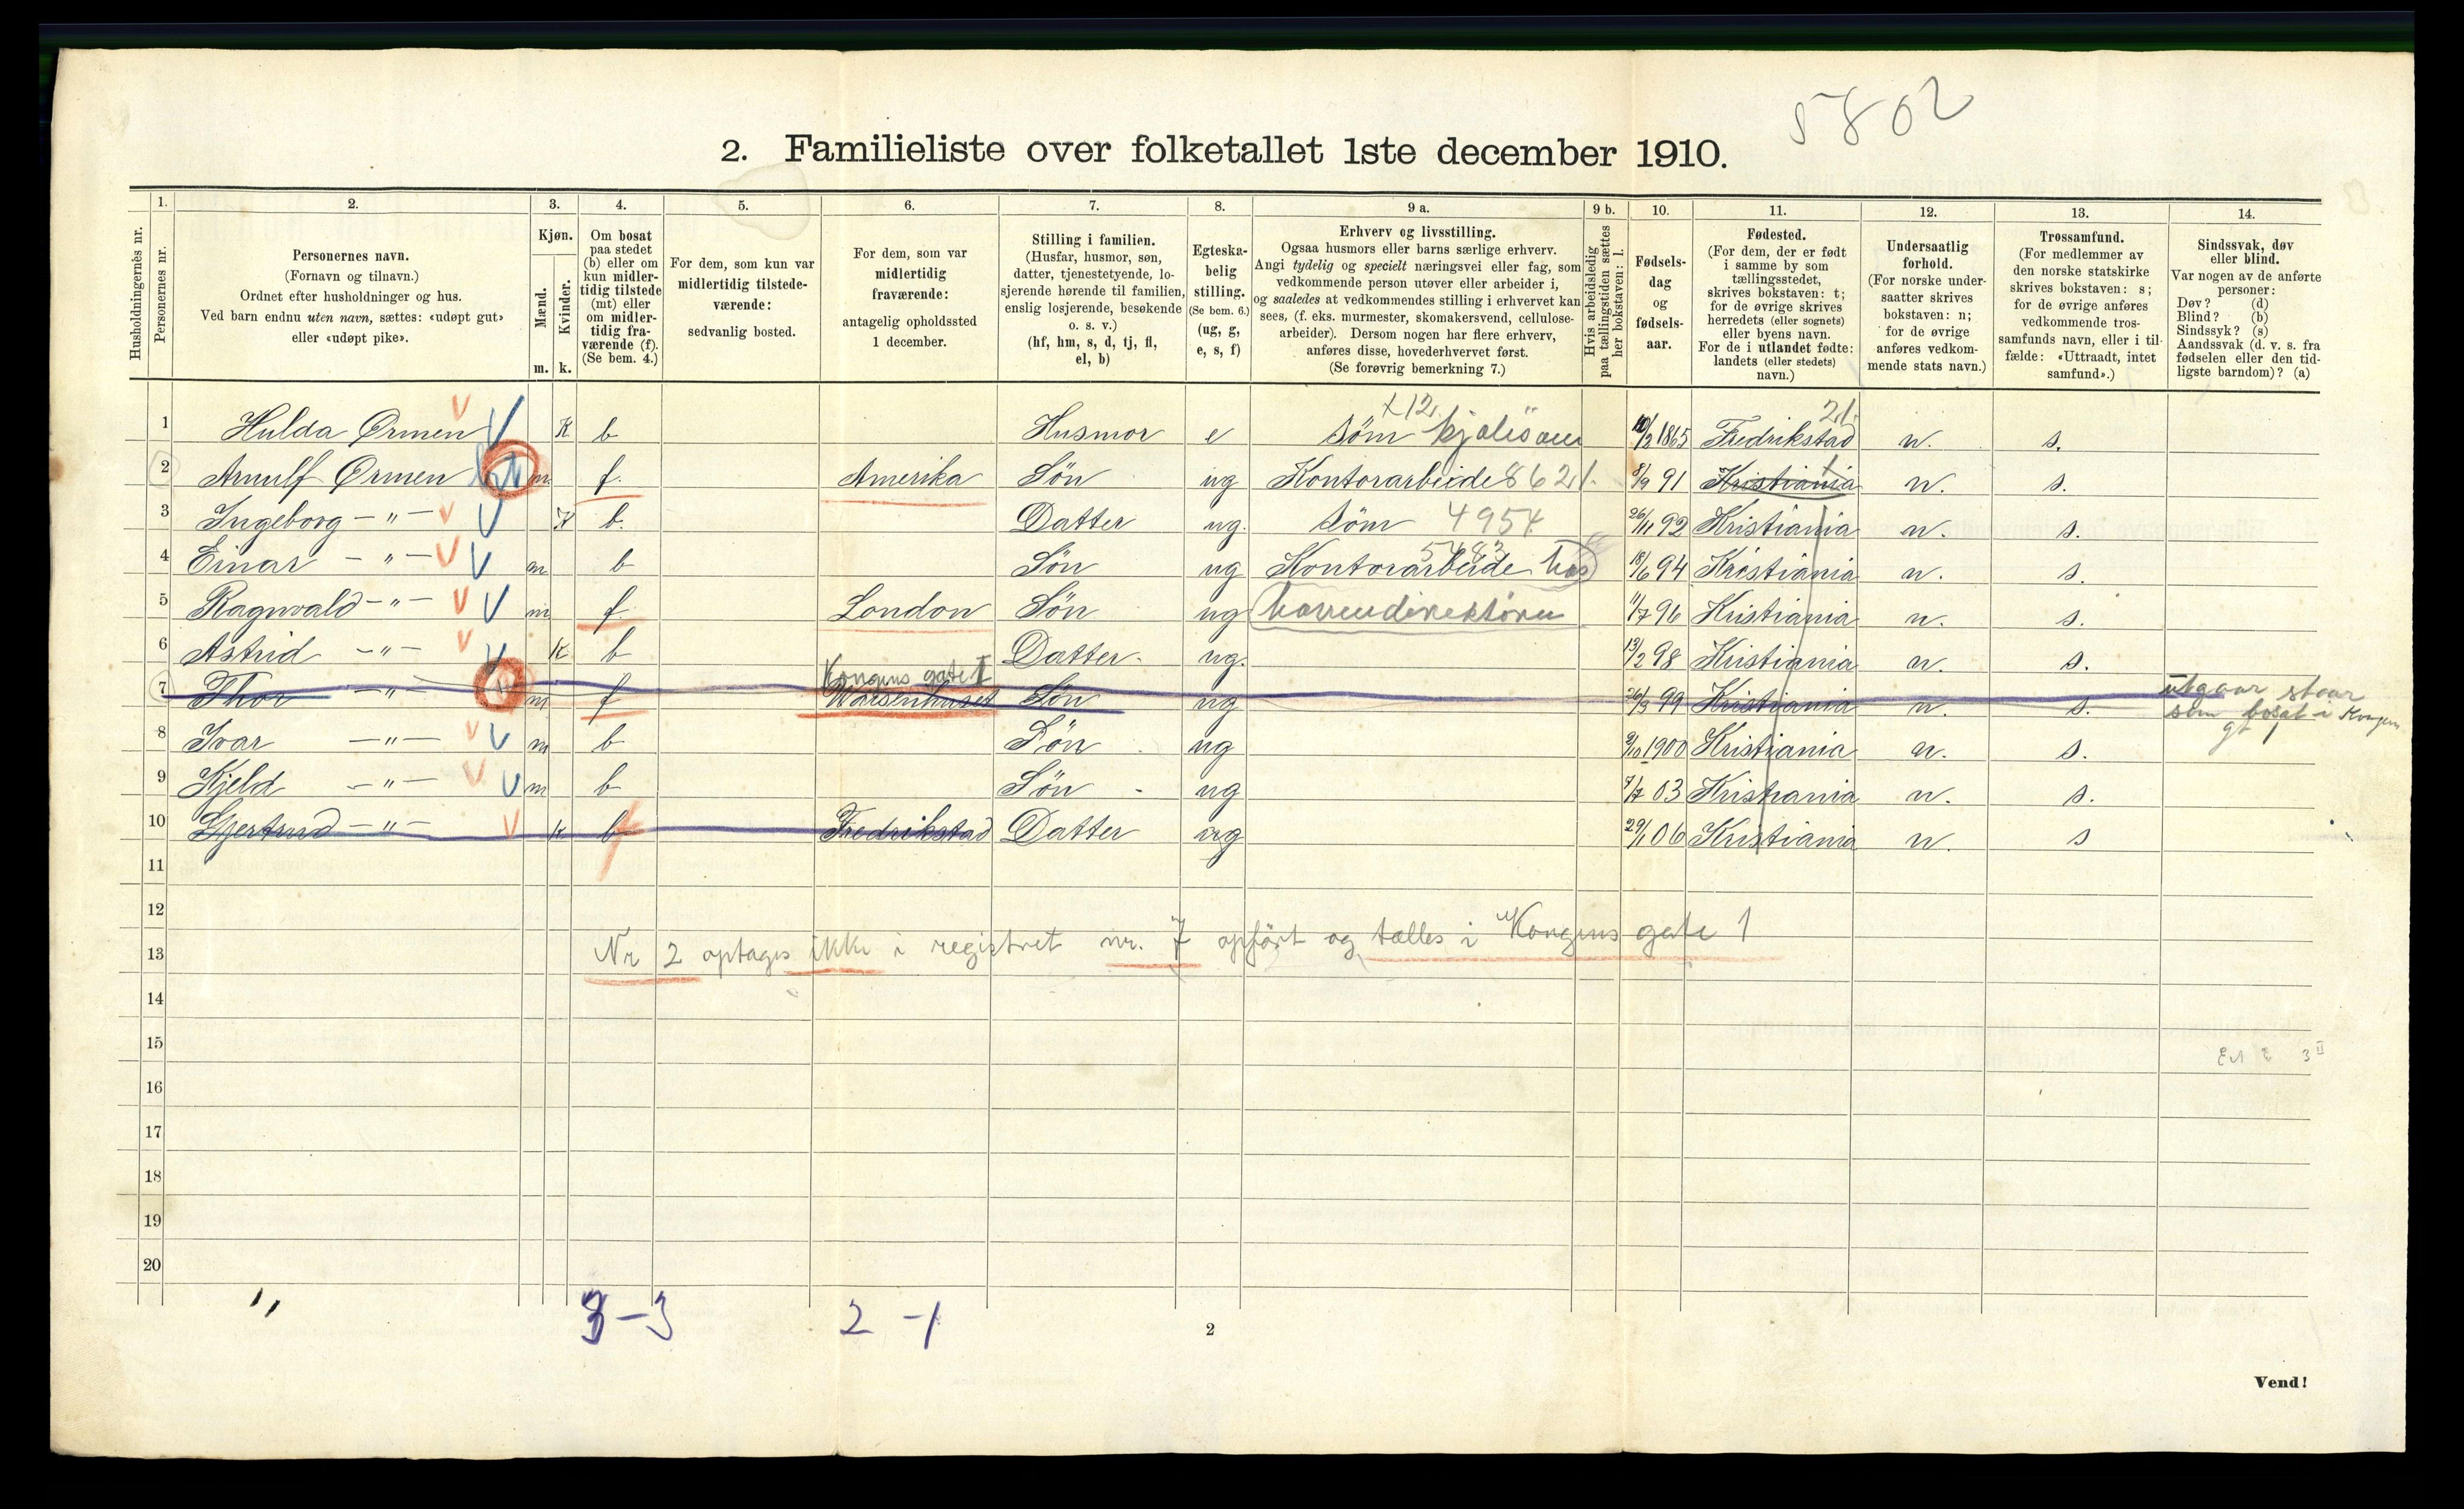 5802
2. Familieliste over folketallet 1ste december 1910.
Husholdningernes nr.
1.
Personernes nr.
2.
Personernes navn.
(Fornavn og tilnavn.)
Ordnet efter husholdninger og hus.
Ved barn endnu uten navn, sættes: «udøpt gut»
eller «udøpt pike».
3.
Kjøn.
Mænd.
m.
Kvinder.
k.
4.
Om bosat
paa stedet
(b) eller om
kun midler-
tidig tilstede
(mt) eller
om midler-
tidig fra-
værende (f).
(Se bem. 4.)
5.
For dem, som kun var
midlertidig tilstede-
værende:
sedvanlig bosted.
6.
For dem, som var
midlertidig
fraværende:
antagelig opholdssted
1 december.
7.
Stilling i familien.
(Husfar, husmor, søn,
datter, tjenestetyende, lo-
sjerende hørende til familien,
enslig losjerende, besøkende
o. s. v.)
(hf, hm, s, d, tj, fl,
el, b)
8.
Egteska-
belig
stilling.
(Se bem. 6.)
(ug, g,
e, s, f)
9 a.
Erhverv og livsstilling.
Ogsaa husmors eller barns særlige erhverv.
Angi tydelig og specielt næringsvei eller fag, som
vedkommende person utøver eller arbeider i,
og saaledes at vedkommendes stilling i erhvervet kan
sees, (f. eks. murmester, skomakersvend, cellulose-
arbeider). Dersom nogen har flere erhverv,
anføres disse, hovederhvervet først.
(Se forøvrig bemerkning 7.)
9 b.
Hvis arbeidsledig
paa tællingstiden sættes
her bokstaven: l.
10.
Fødsels-
dag
og
fødsels-
aar.
11.
Fødested.
(For dem, der er født
i samme by som
tællingsstedet,
skrives bokstaven: t;
for de øvrige skrives
herredets (eller sognets)
eller byens navn.
For de i utlandet fødte:
landets (eller stedets)
navn.)
12.
Undersaatlig
forhold.
(For norske under-
saatter skrives
bokstaven: n;
for de øvrige
anføres vedkom-
mende stats navn.)
13.
Trossamfund.
(For medlemmer av
den norske statskirke
skrives bokstaven: s;
for de øvrige anføres
vedkommende tros-
samfunds navn, eller i til-
fælde: «Uttraadt, intet
samfund».)
14.
Sindssvak, døv
eller blind.
Var nogen av de anførte
personer:
Døv? (d)
Blind? (b)
Sindssyk? (s)
Aandssvak (d. v. s. fra
fødselen eller den tid-
ligste barndom)? (a)
1 Hulda Ørmen K b Husmor e søm kjolesøm 10/2 1865 Fredrikstad n. s.
2 Arnulf Ørmen m f. Amerika Søn ug Kontorarbeide 8621. 8/9 91 Kristiania n. s.
3 Ingeborg -"- K b. Datter ug. søm 4954 26/11 92 Kristiania n. s.
4 Einar -"- m b Søn ug Kontorarbeide hos 5483 18/6 94 Kristiania n. s.
5 Ragnvald -"- m f. London Søn ug havnedirektøren 11/7 96 Kristiania n. s.
6 Astrid -"- K b Datter. ug. 13/2 98 Kristiania n. s.
Kongens gate 1
7 Thor -"- m f Waisenhuset Søn ug 26/3 99 Kristiania n. s. utgaar staar
som bosat i Kongens
gt 1
8 Ivar -"- m b Søn ug 9/10 1900 Kristiania n. s.
9 Kjeld -"- m b Søn ug 7/7 03 Kristiania n. s.
10 Gjertrud -"- k b f Fredrikstad Datter ug 29/1 06 Kristiania n. s
11
12
13 Nr 2 optages ikke i registret nr. 7 opført og tælles i Kongens gate 1
14
15
16
17
18
19
20
3-3 2-1
2
Vend!